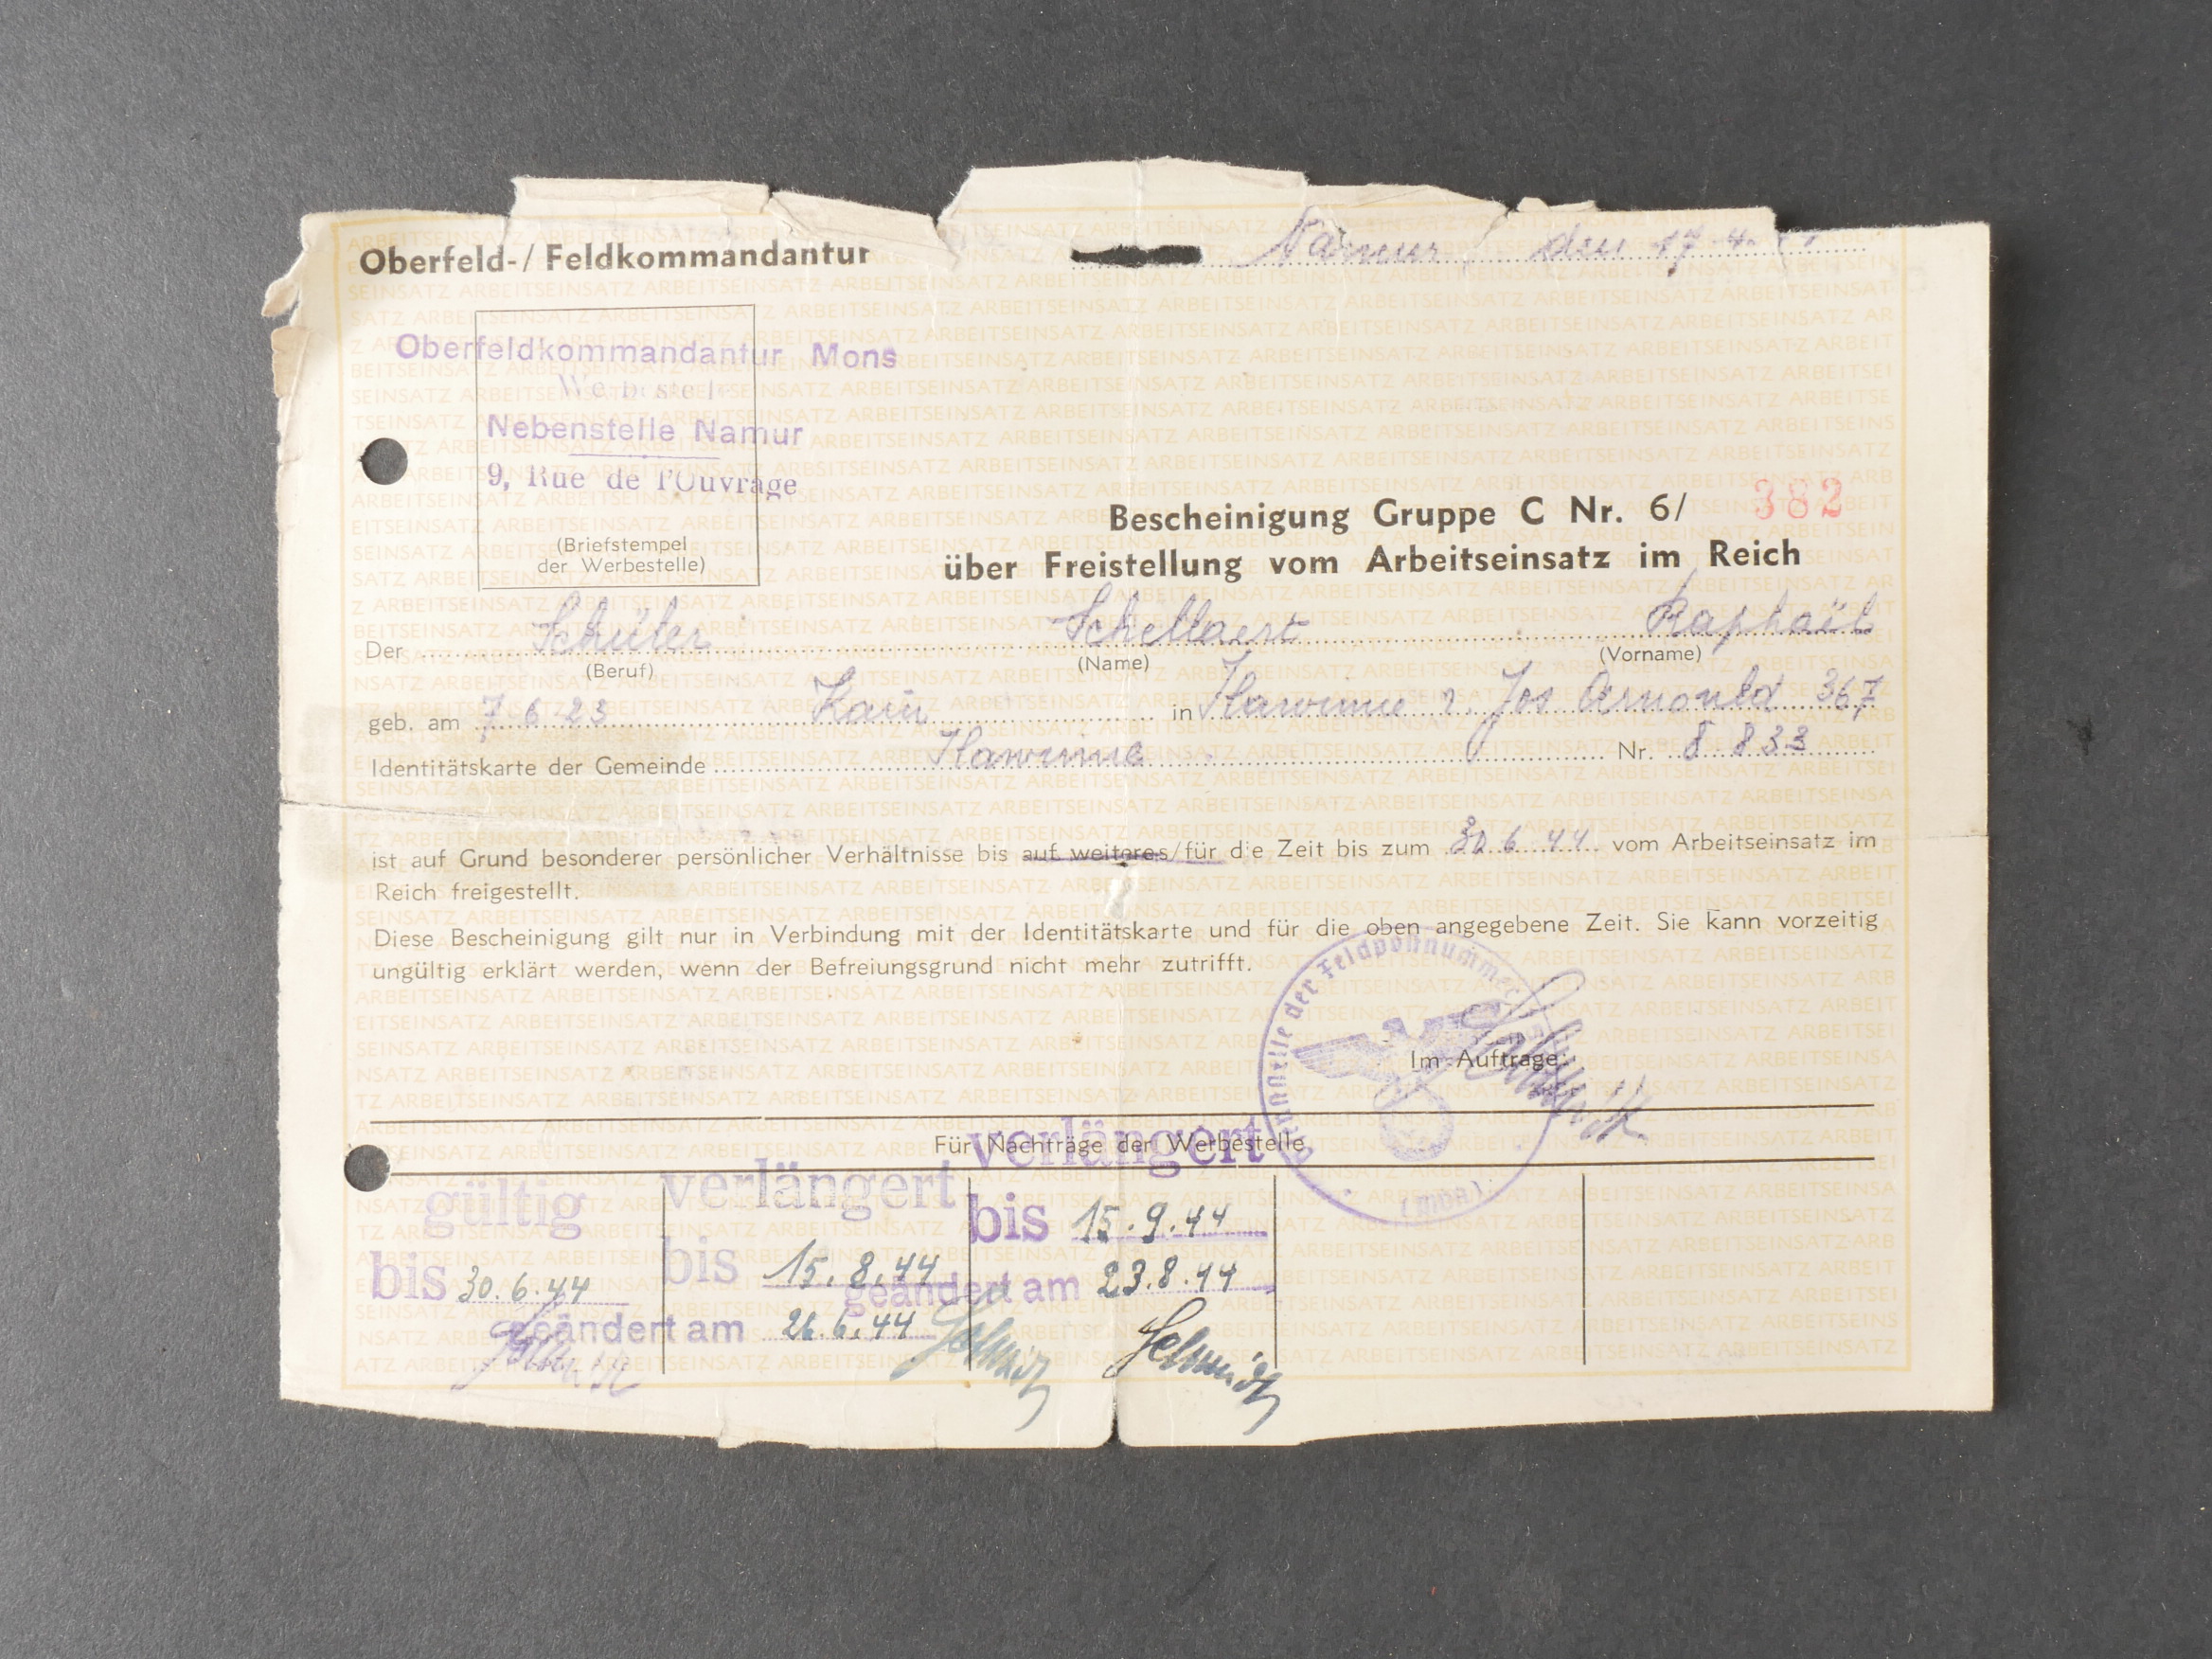 Oberfeld-/ Feldkommandantur
Namur, den 17.4.
Oberfeldkommandantur Mons
Werbestelle
Nebenstelle Namur
9, Rue de l'Ouvrage
(Briefstempel
der Werbestelle)
Bescheinigung Gruppe C Nr. 6/ 382
über Freistellung vom Arbeitseinsatz im Reich
Der Schüler Schellaert Raphaël
(Beruf) (Name) (Vorname)
geb. am 7.6.23 in Flawinne r. Jos 367
Identitätskarte der Gemeinde Flawinne Nr. 8833
ist auf Grund besonderer persönlicher Verhältnisse bis auf weiteres/für die Zeit bis zum 30.6.44 vom Arbeitseinsatz im
Reich freigestellt.
Diese Bescheinigung gilt nur in Verbindung mit der Identitätskarte und für die oben angegebene Zeit. Sie kann vorzeitig
ungültig erklärt werden, wenn der Befreiungsgrund nicht mehr zutrifft.
Dienststelle der Feldpostnummer
Im Auftrage:
Für Nachträge der Werbestelle
gültig
bis 30.6.44
verlängert
bis 15.8.44
geändert am 26.6.44
verlängert
bis 15.9.44
geändert am 23.8.44